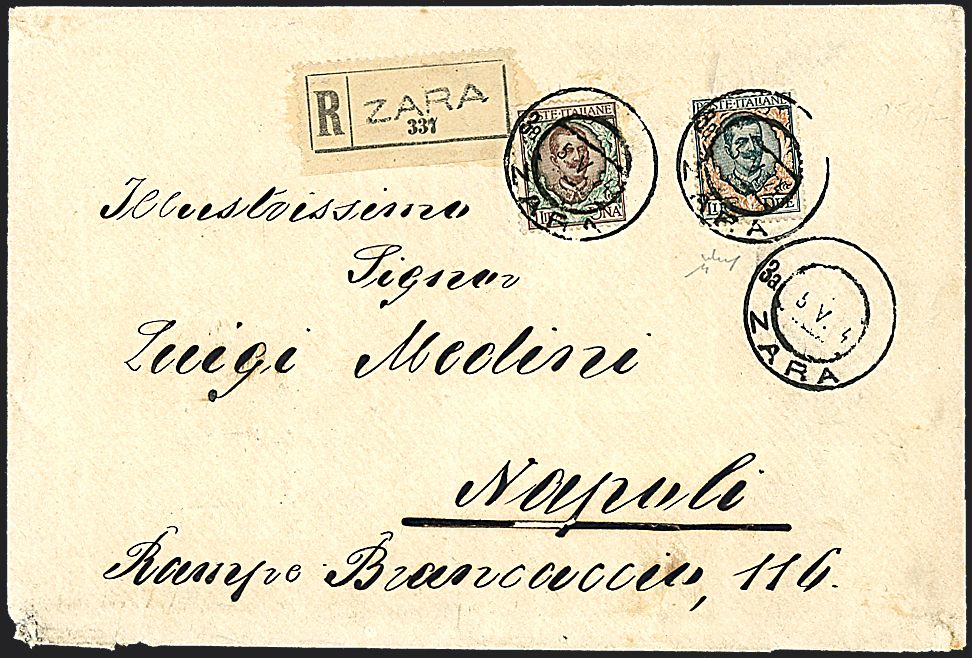 R ZARA
337
POSTE·ITALIANE
LIRE UNA
POSTE·ITALIANE
LIRE DUE
ZARA
ZARA
3a
5 V.
ZARA
Illustrissimo
Signor
Luigi Medini
Napoli
Rampe Brancaccio, 116.